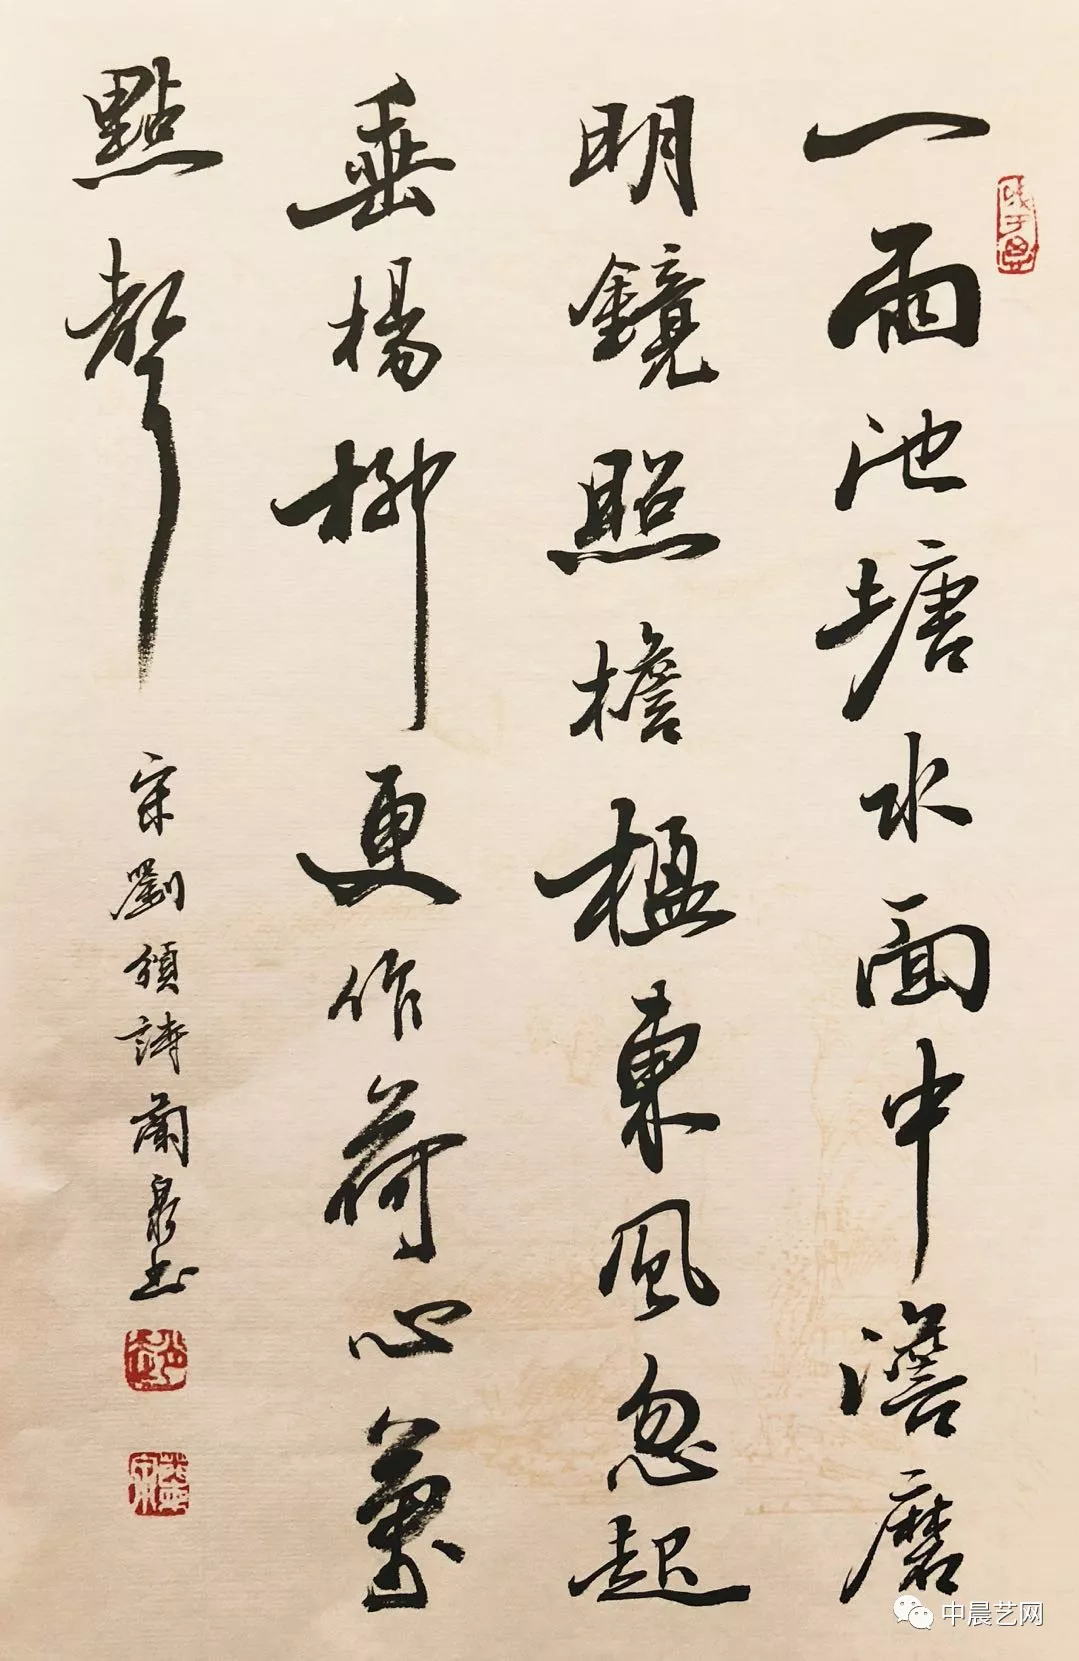 一雨池塘水面中澹磨
明鏡照檐楹東風忽起
垂楊柳更作荷心萬
點聲
宋劉頒詩蘭泉书
中晨艺网